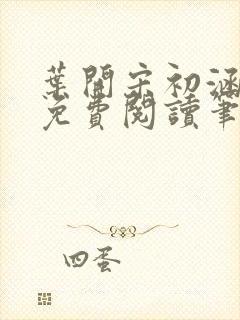 葉開宋初涵
免費閱讀筆
四蛋